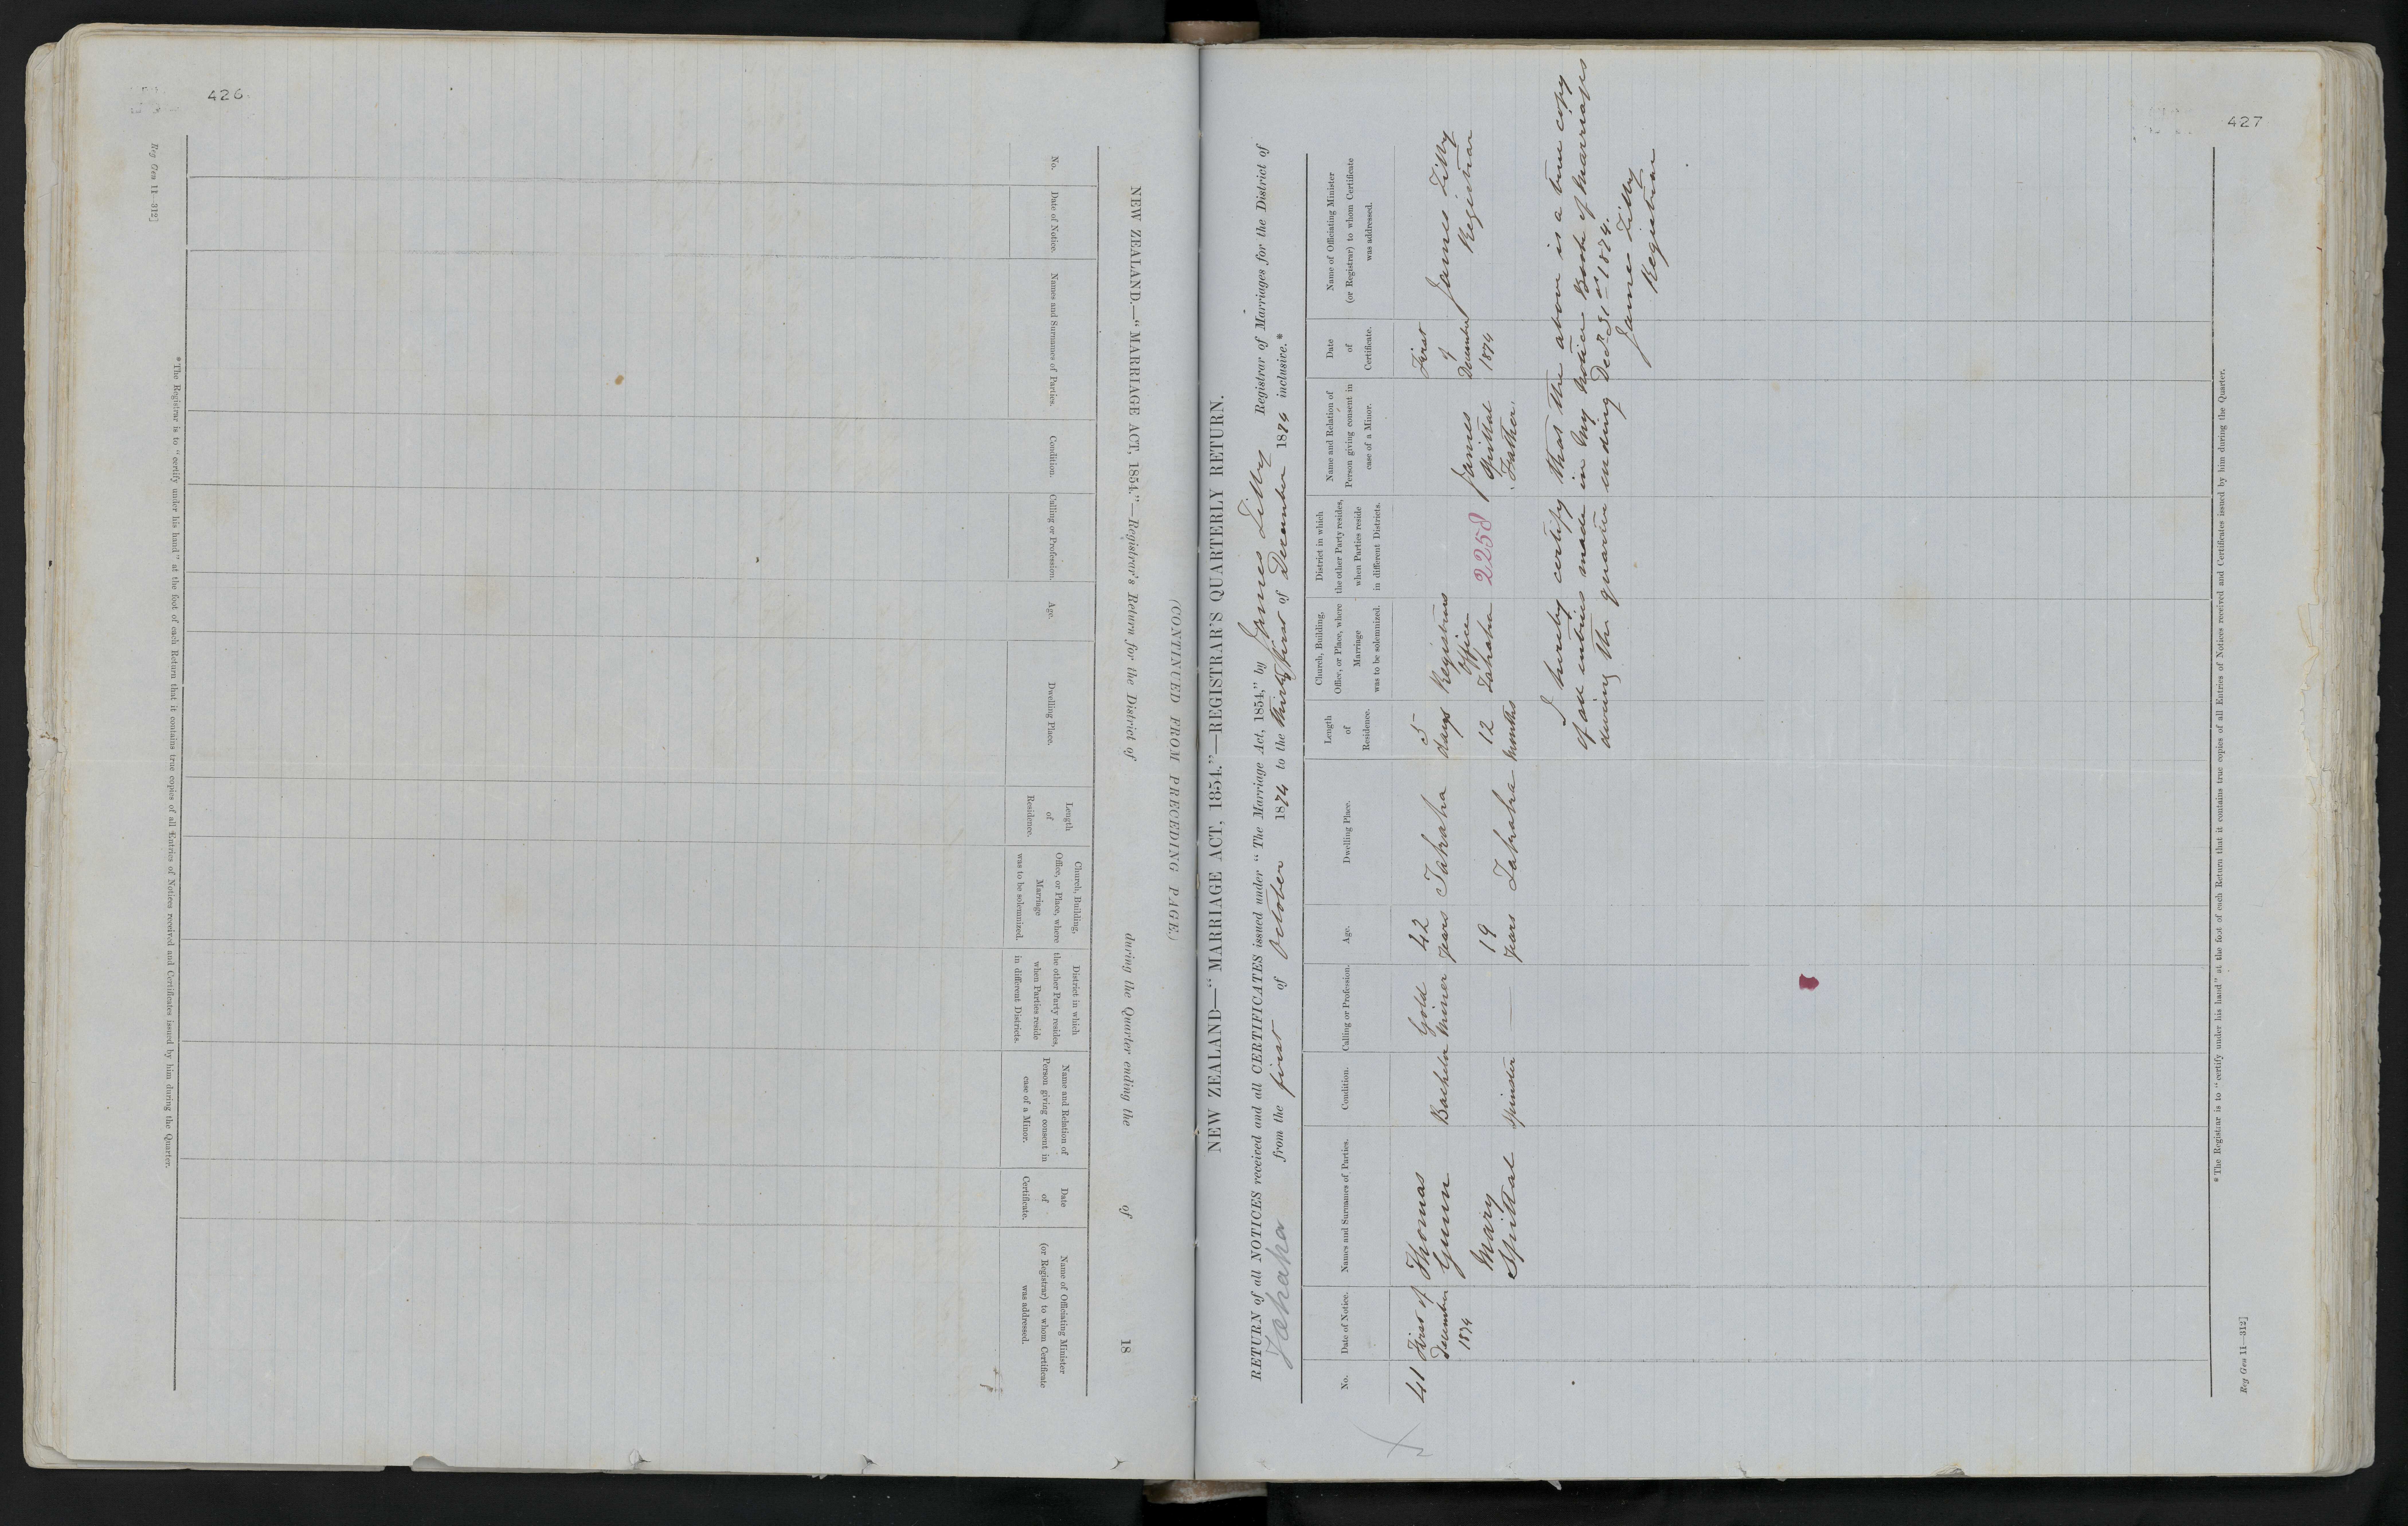 426
Reg Gen 11—312]
NEW ZEALAND.—"MARRIAGE ACT, 1854."—Registrar's Return for the District of during the Quarter ending the of 18
(CONTINUED FROM PRECEDING PAGE.)
No.
Date of Notice.
Names and Surnames of Parties.
Condition.
Calling or Profession.
Age.
Dwelling Place.
Length of Residence.
Church, Building, Office, or Place, where Marriage was to be solemnized.
District in which the other Party resides, when Parties reside in different Districts.
Name and Relation of Person giving consent in case of a Minor.
Date of Certificate.
Name of Officiating Minister (or Registrar) to whom Certificate was addressed.
*The Registrar is to "certify under his hand" at the foot of each Return that it contains true copies of all Entries of Notices received and Certificates issued by him during the Quarter.
427
NEW ZEALAND—"MARRIAGE ACT, 1854."—REGISTRAR'S QUARTERLY RETURN.
RETURN of all NOTICES received and all CERTIFICATES issued under "The Marriage Act, 1854," by James Tilby Registrar of Marriages for the District of
Tahaka from the first of October 1874 to the thirty first of December 1874 inclusive.*
No.
Date of Notice.
Names and Surnames of Parties.
Condition.
Calling or Profession.
Age.
Dwelling Place.
Length of Residence.
Church, Building, Office, or Place, where Marriage was to be solemnized.
District in which the other Party resides, when Parties reside in different Districts.
Name and Relation of Person giving consent in case of a Minor.
Date of Certificate.
Name of Officiating Minister (or Registrar) to whom Certificate was addressed.
41
First of December 1874
Thomas Gunn
Bachelor
Gold Miner
42 years
Tahaka
5 days
Registrars Office Tahaka
2258
James Spittal Father.
First of December 1874
James Tilby Registrar
Mary Spittal
Spinster
—
19 years
Tahaka
12 months
I hereby certify that the above is a true copy
of all entries made in my Notice Book of Marriages
during the quarter ending Decr 31st 1874.
James Tilby
Registrar
*The Registrar is to "certify under his hand" at the foot of each Return that it contains true copies of all Entries of Notices received and Certificates issued by him during the Quarter.
Reg Gen 11—312]